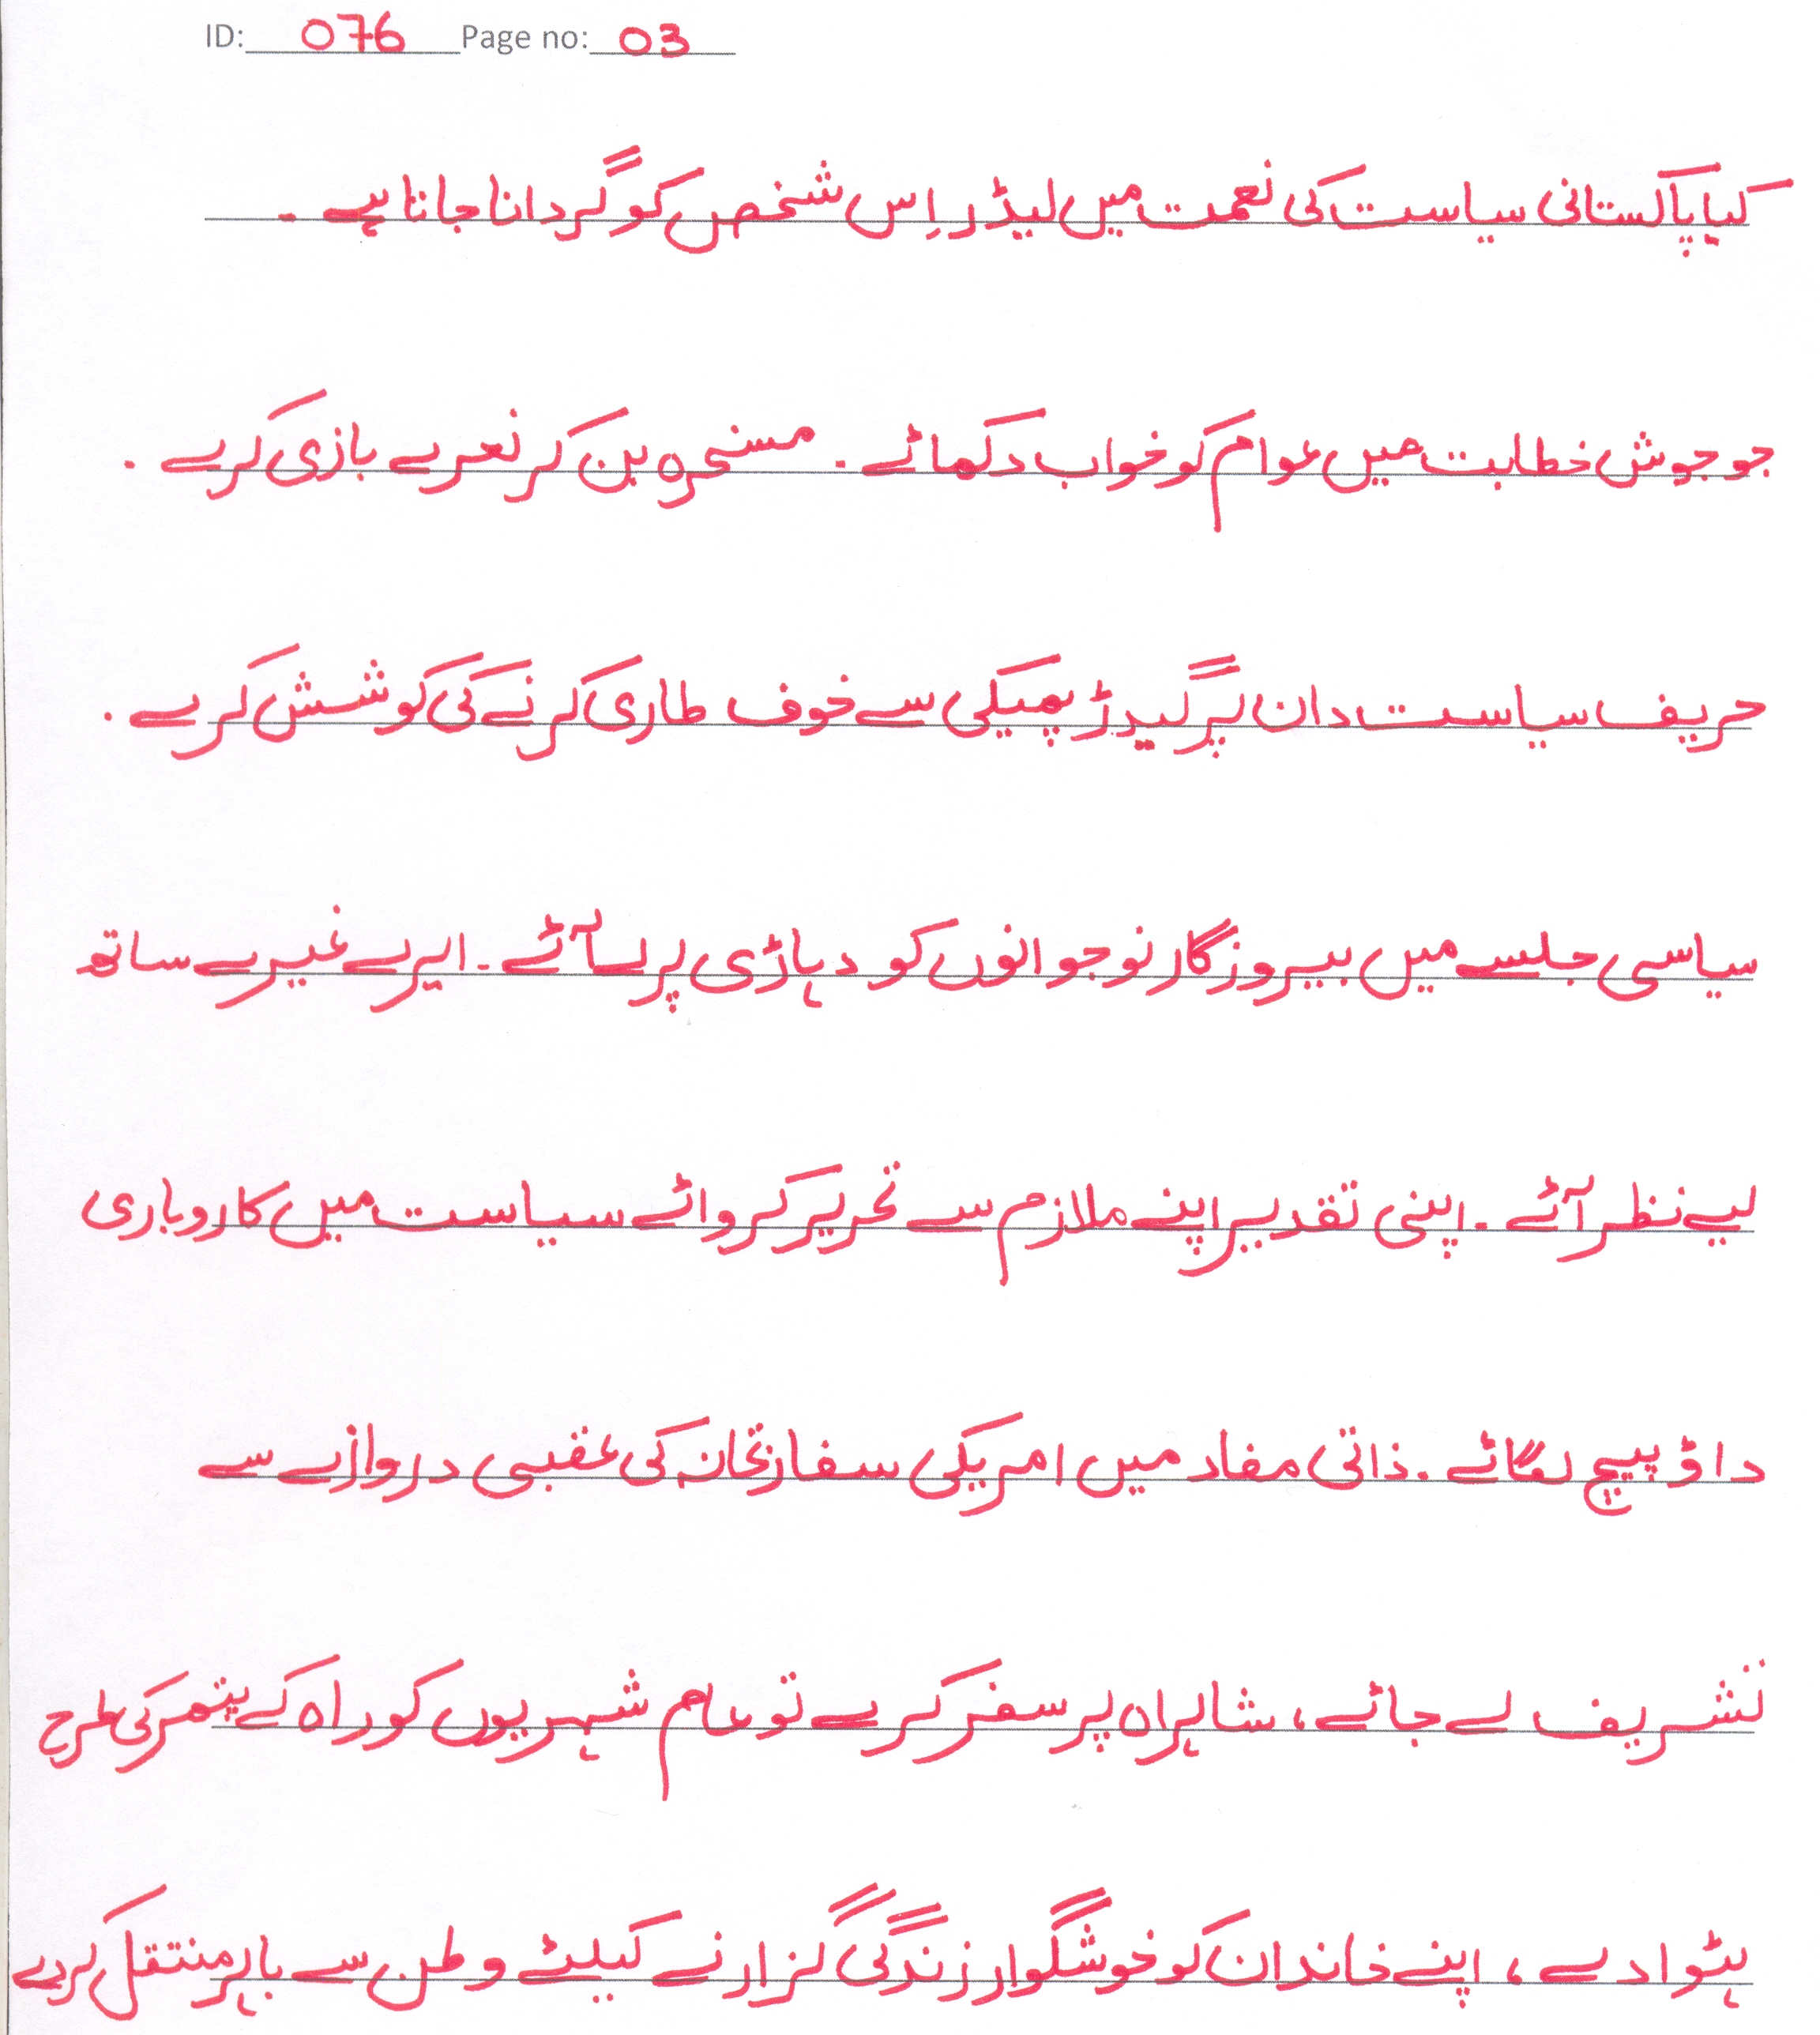 ID: 076 Page no: 03
کیا پاکستانی سیاست کی نعمت میں لیڈر اِس شخص کو گردانا جاتا ہے ۔
جو جوش خطابت میں عوام کو خواب دکھائے ۔ مسخرہ بن کر نعرے بازی کرے ۔
حریف سیاست دان پر گیدڑ بھبکی سے خوف طاری کرنے کی کوشش کرے ۔
سیاسی جلسے میں بیروزگار نوجوانوں کو دہاڑی پر لے آئے ۔ ایرے غیرے ساتھ
لیے نظر آئے ۔ اپنی تقدیر اپنے ملازم سے تحریر کروائے سیاست میں کاروباری
داؤ پیچ لگائے ۔ ذاتی مفاد میں امریکی سفارتخانہ کی عقبی دروازے سے
تشریف لے جائے ، شاہراہ پر سفر کرے تو عام شہریوں کو راہ کے پتھر کی طرح
ہٹوا دے ، اپنے خاندان کو خوشگوار زندگی گزارنے کیلئے وطن سے باہر منتقل کردے